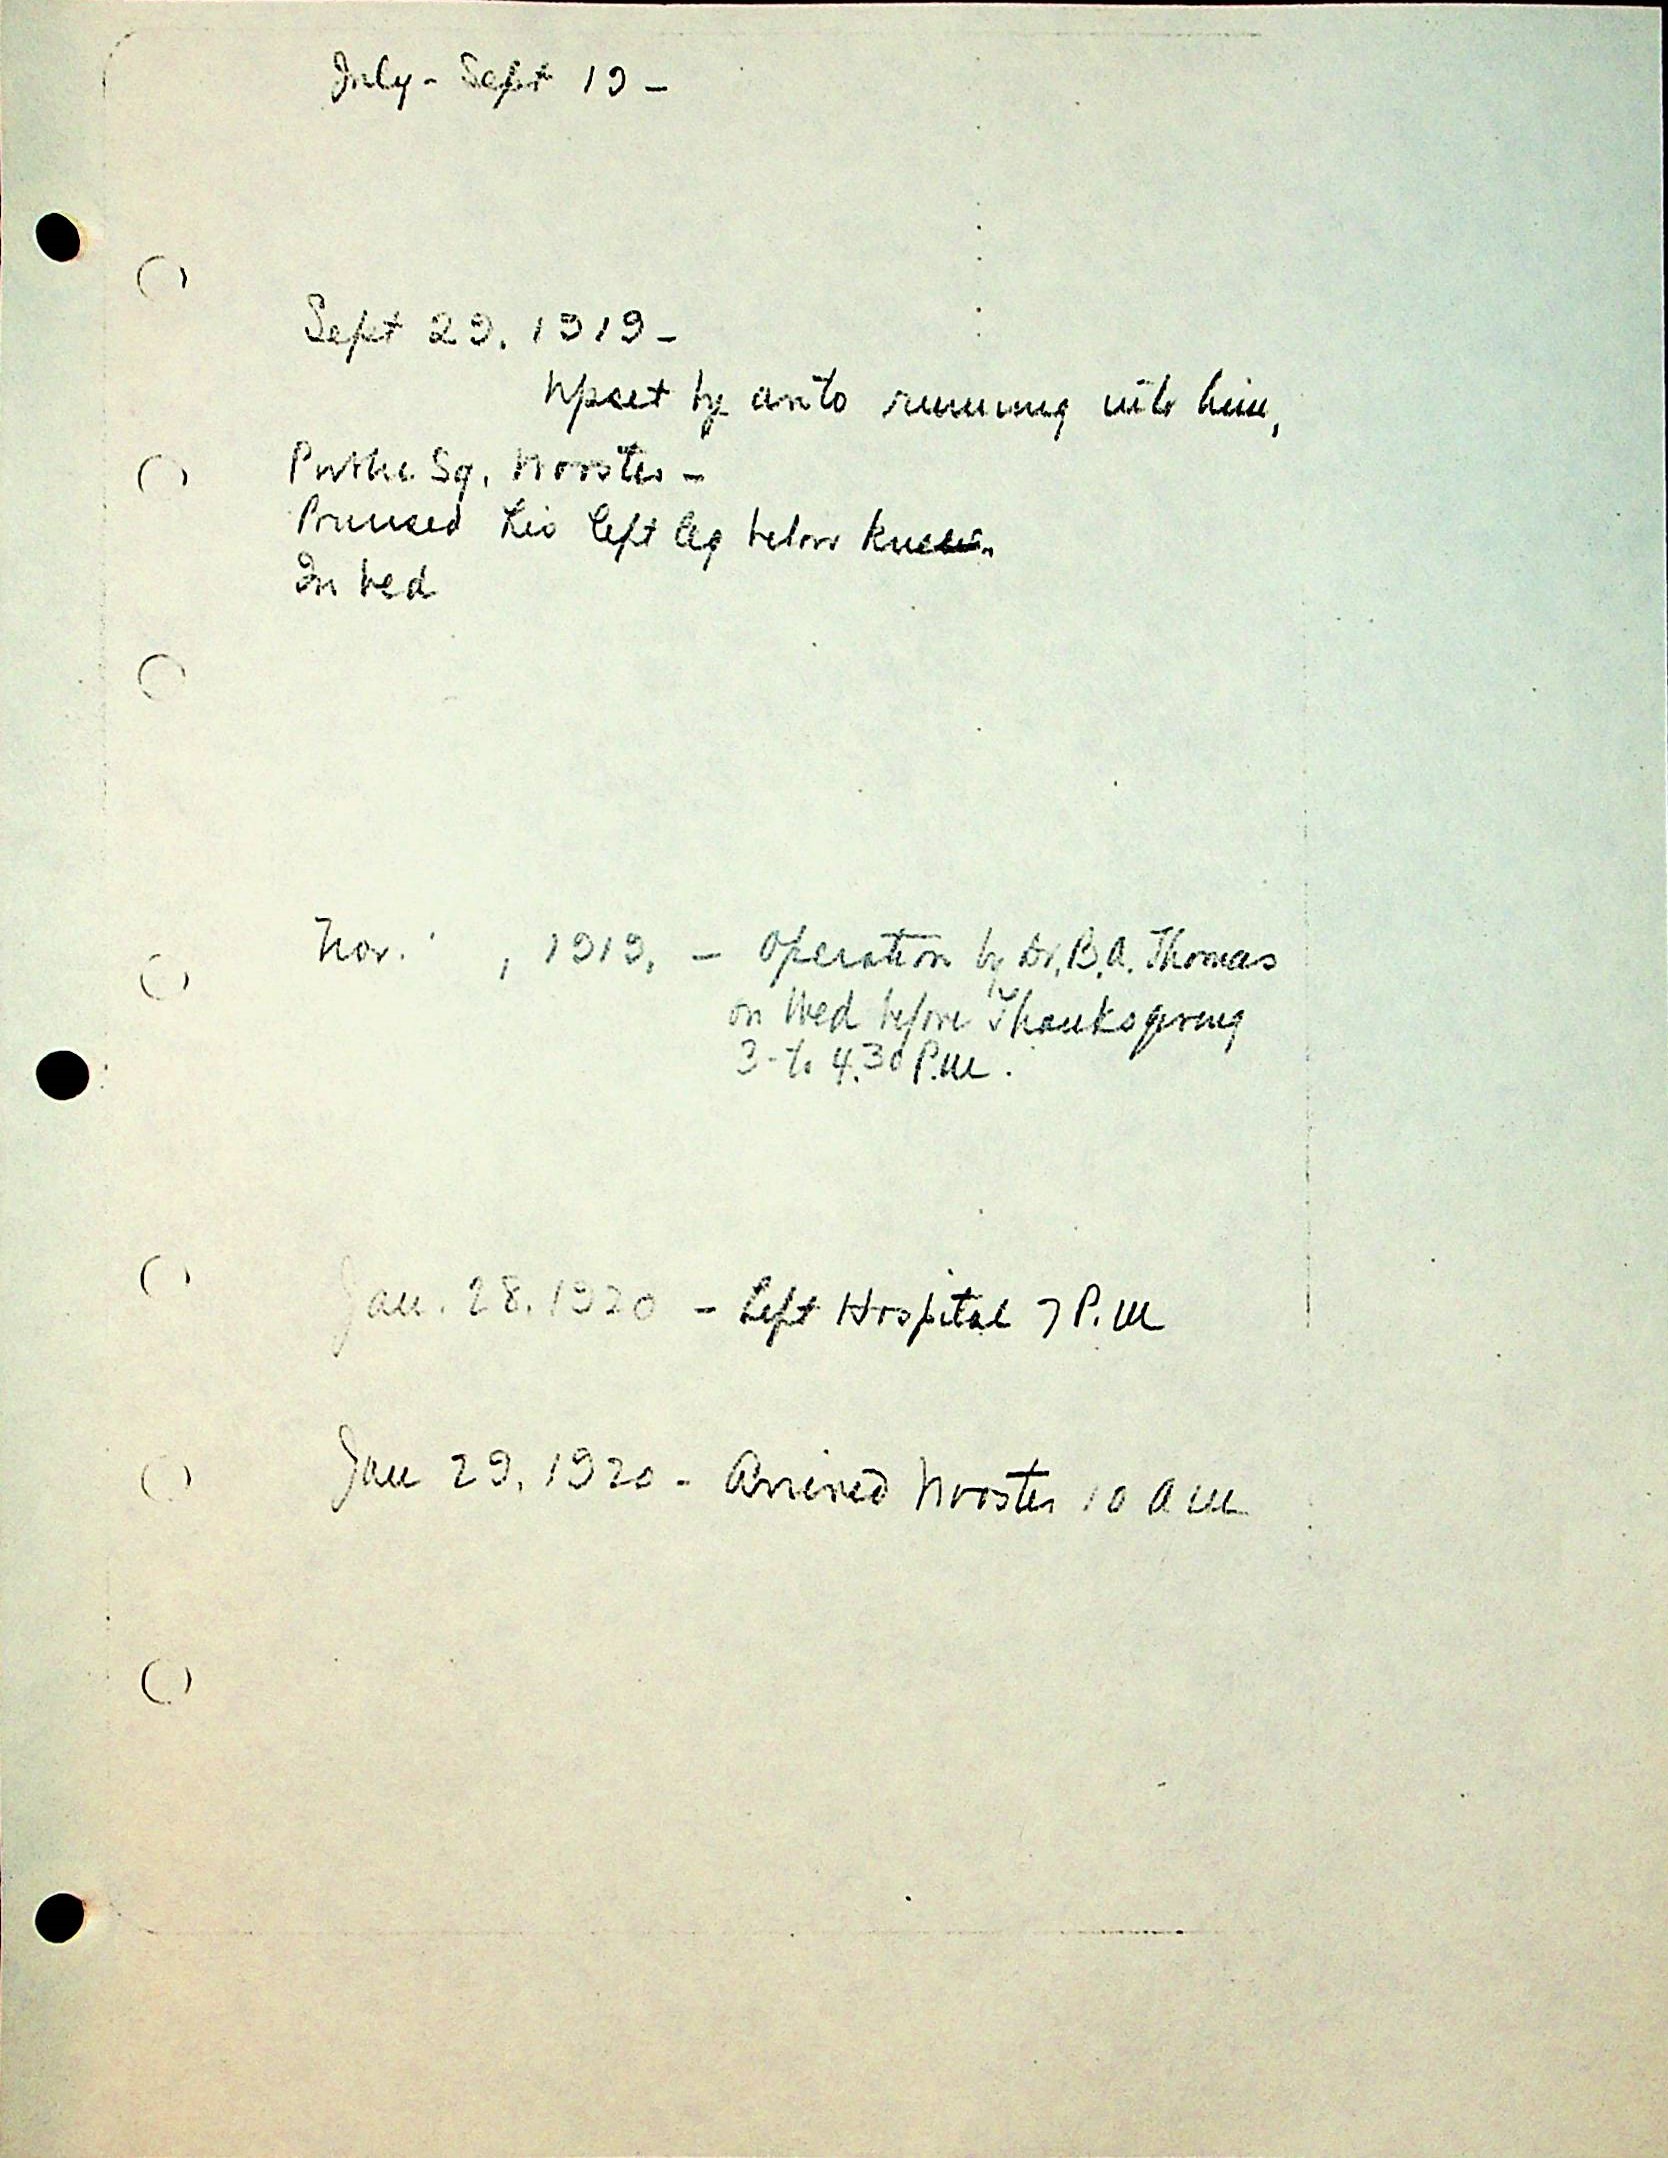 July - Sept 19 -
Sept 29, 1919 -
Upset by auto running into him,
Public Sq. Wooster -
Bruised his left leg below knee.
In bed
Nov. , 1919, - Operation by Dr. B. A. Thomas
on Wed before Thanksgiving
3 - to 4.30 P.M.
Jan. 28, 1920 - Left Hospital 7 P.M
Jan 29, 1920 - Arrived Wooster 10 A M